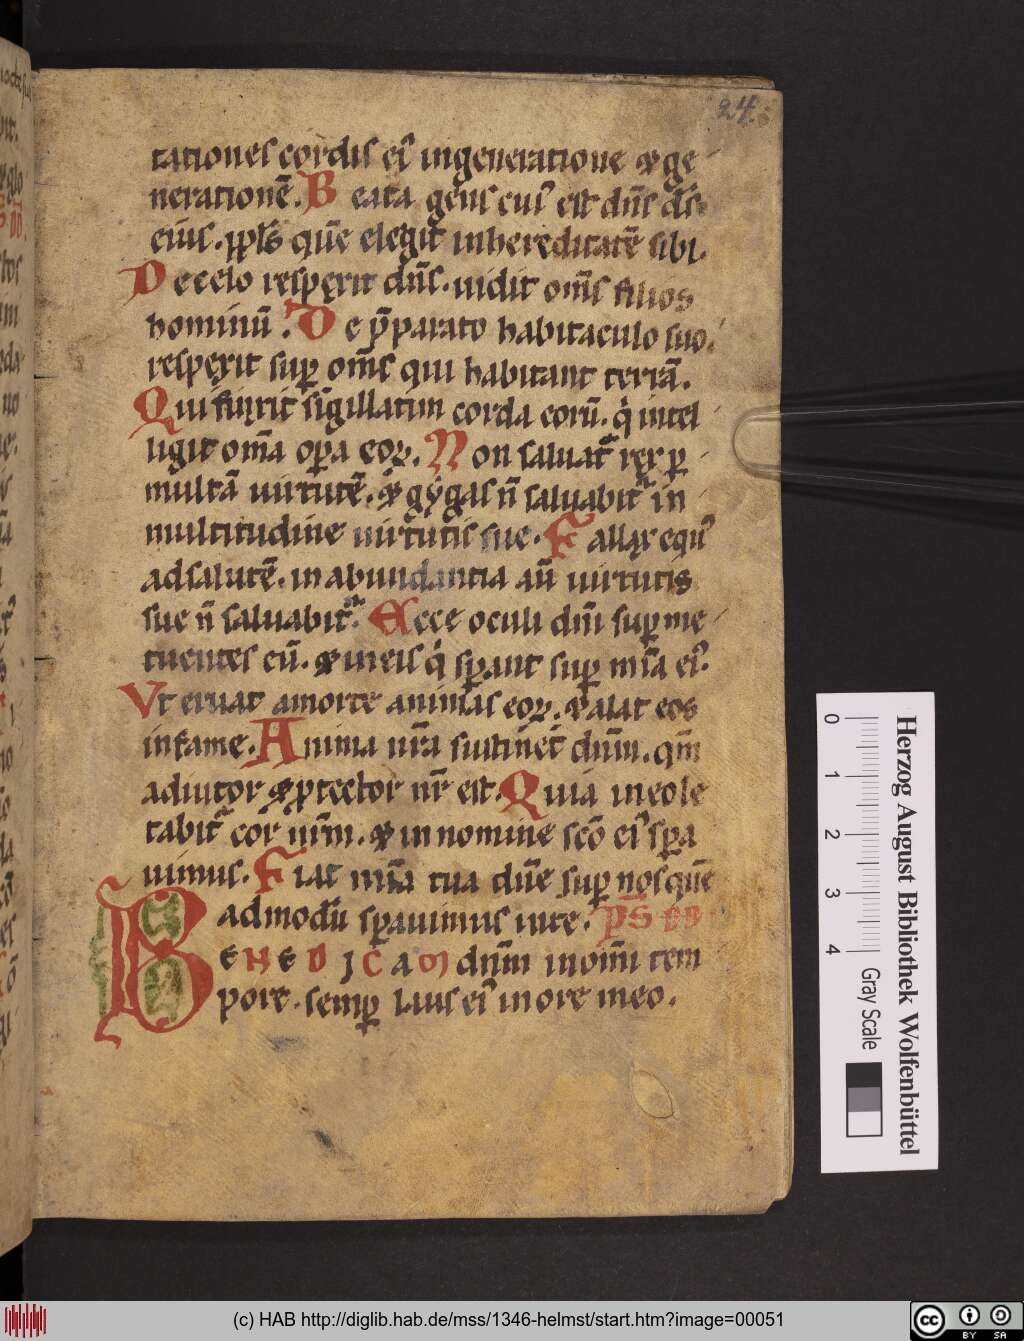 24.
tationes cordis ei᷒ in generatione ⁊ ge
nerationē. Beata gens cui᷒ est dn̄s ds̄
eius. ppl̄s quē elegit in hereditatē sibi.
De celo respexit dn̄s. uidit om̄s filios
hominū. De p̄parato habitaculo suo.
respexit sup om̄s qui habitant terrā.
Qui finxit sigillatim corda eorū. q̇ intel
ligit om̄a oꝑa eoꝝ. Non saluat᷑ rex ꝑ
multā uirtutē. ⁊ gygas n̄ saluabit᷑ in
multitudine uirtutis sue. Fallax equ᷒
ad salutē. in abundantia aū uirtutis
sue n̄ saluabit᷑. Ecce oculi dn̄i sup me
tuentes eū. ⁊ in eis q̇ sꝑant sup mīa ei᷒.
Vt eruat a morte animas eoꝝ. ⁊ alat eos
in fame. Anima nr̄a sustinet dn̄m. qm̄
adiutor ⁊ ꝓtector nr̄ est. Quia in eo le
tabit᷑ cor nr̄m. ⁊ in nomine scō ei᷒ sꝑa
uimus. Fiat mīa tua dn̄e sup nos quē
admodū sꝑauimus in te. ps̄
BENEDICAM dn̄m in om̄i tem
pore. semꝑ laus ei᷒ in ore meo.
Herzog August Bibliothek Wolfenbüttel
0 1 2 3 4
Gray Scale
(c) HAB http://diglib.hab.de/mss/1346-helmst/start.htm?image=00051
cc BY SA